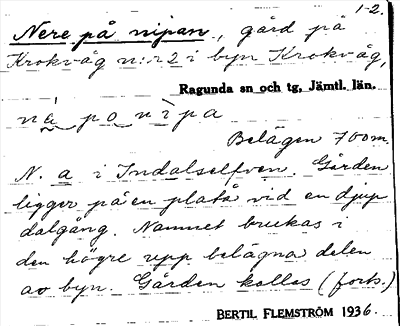 1-2.
Nere på nipan, gård på
Krokvåg n:r 2 i byn Krokvåg,
Ragunda sn och tg, Jämtl. län.
ná po nìpa
Belägen 700 m.
N. a i Indalselfven. Gården
ligger på en platå vid en djup
dalgång. Namnet brukas i
den högre upp belägna delen
av byn. Gården kallas (forts.)
BERTIL FLEMSTRÖM 1936.